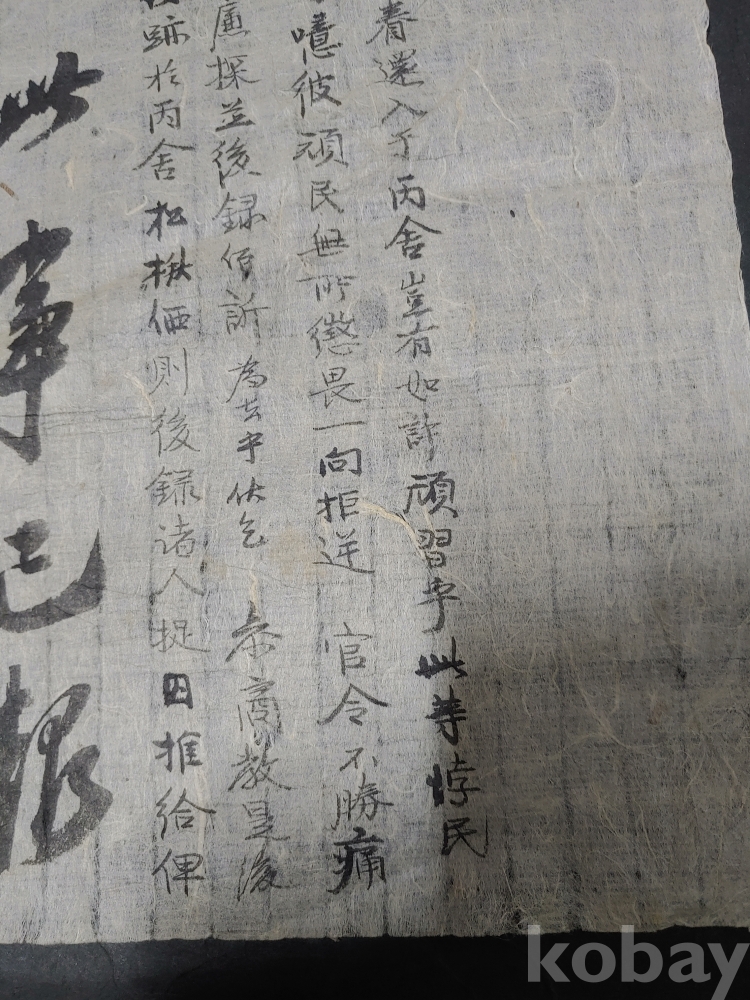 春遂入于丙舍豈有如許頑習乎此等悖民
噫彼頑民無所懲畏一向拒逆 官令不勝痛
廉探並後錄仰訴爲去乎伏乞 參商敎是後
跡於丙舍松楸価則後錄諸人捉囚推給俾
此事已報
kobay